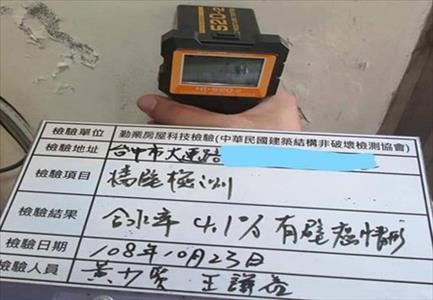 520-2
HI-520-2
檢驗單位 勤業房屋科技檢驗(中華民國建築結構非破壞檢測協會)
檢驗地址 台中市大連路
檢驗項目 檢測
檢驗結果 含水率 4.1% 有壁癌情形
檢驗日期 108年10月23日
檢驗人員